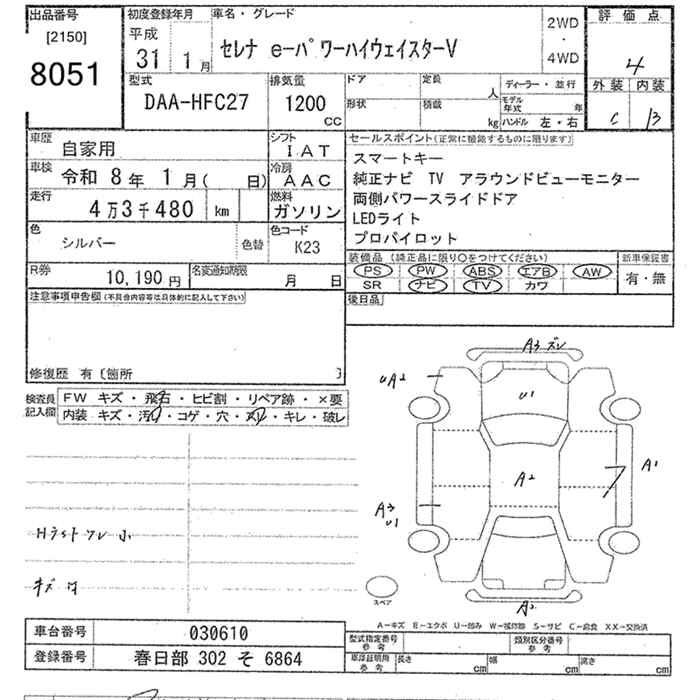 出品番号
[2150]
8051
初度登録年月
平成
31 1月
車名・グレード
セレナ e-パワーハイウェイスターV
2WD
・
4WD
評価点
4
外装 内装
C B
型式
DAA-HFC27
排気量
1200
CC
ドア
形状
定員
人
積載
kg
ディーラー・並行
モデル年式 年
ハンドル 左・右
車歴
自家用
シフト
IAT
車検
令和 8年 1月( 日)
冷房
AAC
走行
4万3千480 km
燃料
ガソリン
色
シルバー
色替
色コード
K23
R券
10,190円
名変通知期限
月 日
セールスポイント(正常に機能するものに限ります)
スマートキー
純正ナビ TV アラウンドビューモニター
両側パワースライドドア
LEDライト
プロパイロット
装備品 (純正品に限り○をつけてください)
PS PW ABS エアB AW
SR ナビ TV カワ
新車保証書
有・無
後日品
注意事項申告欄(不具合内容等は具体的に記入して下さい)
修復歴 有〔箇所 〕
検査員
記入欄
FW キズ・飛石・ヒビ割・リペア跡・×要
内装 キズ・汚れ・コゲ・穴・スリ・キレ・破レ
Hライトワレ小
キズ
A3 ズレ
UA2
U1
A2
A1
A3
U1
A2
スペア
A-キズ E-エクボ U-凹み W-補修跡 S-サビ C-腐食 XX-交換済
車台番号
030610
登録番号
春日部 302 そ 6864
型式指定番号
参考
類別区分番号
参考
車庫証明用
参考
長さ cm
幅 cm
高さ cm